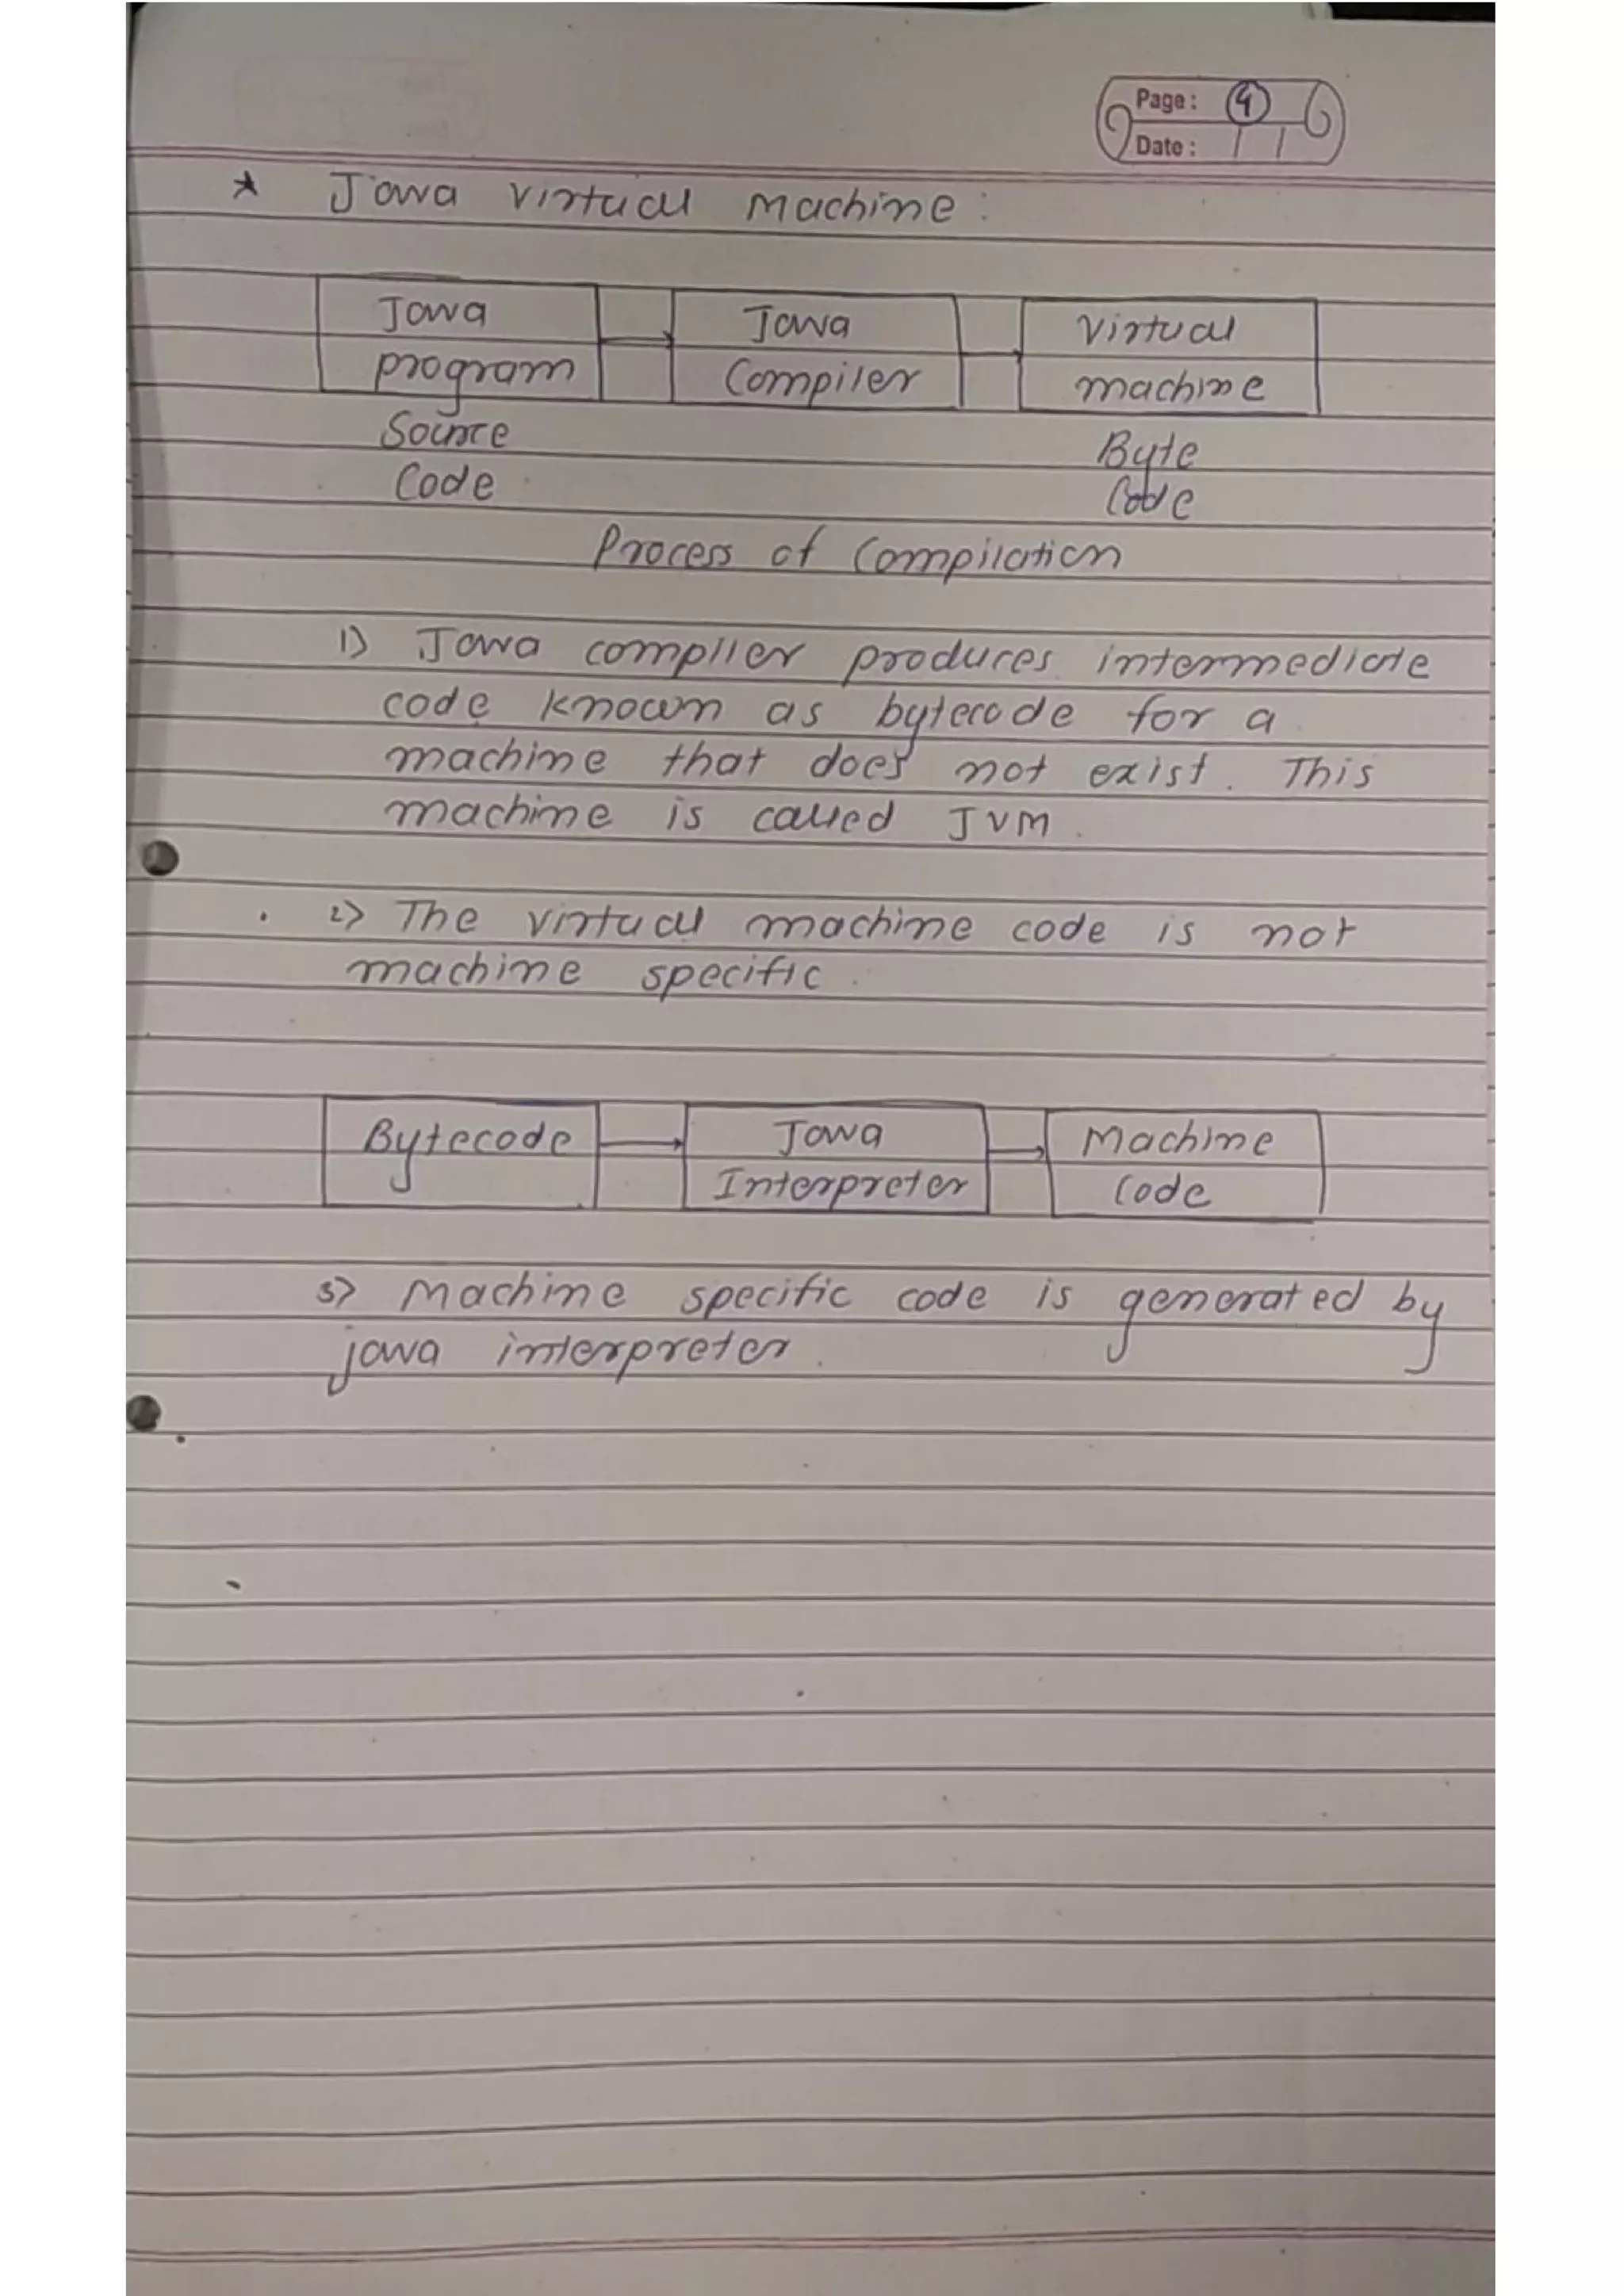 Page: 4
Date: / /
* Java Virtual Machine:
Java Java Virtual
program Compiler machine
Source Byte
Code Code
Process of Compilation
1) Java compiler produces intermediate
code known as bytecode for a
machine that does not exist. This
machine is called JVM.
2) The virtual machine code is not
machine specific.
Bytecode Java Machine
Interpreter Code
3) Machine specific code is generated by
java interpreter.